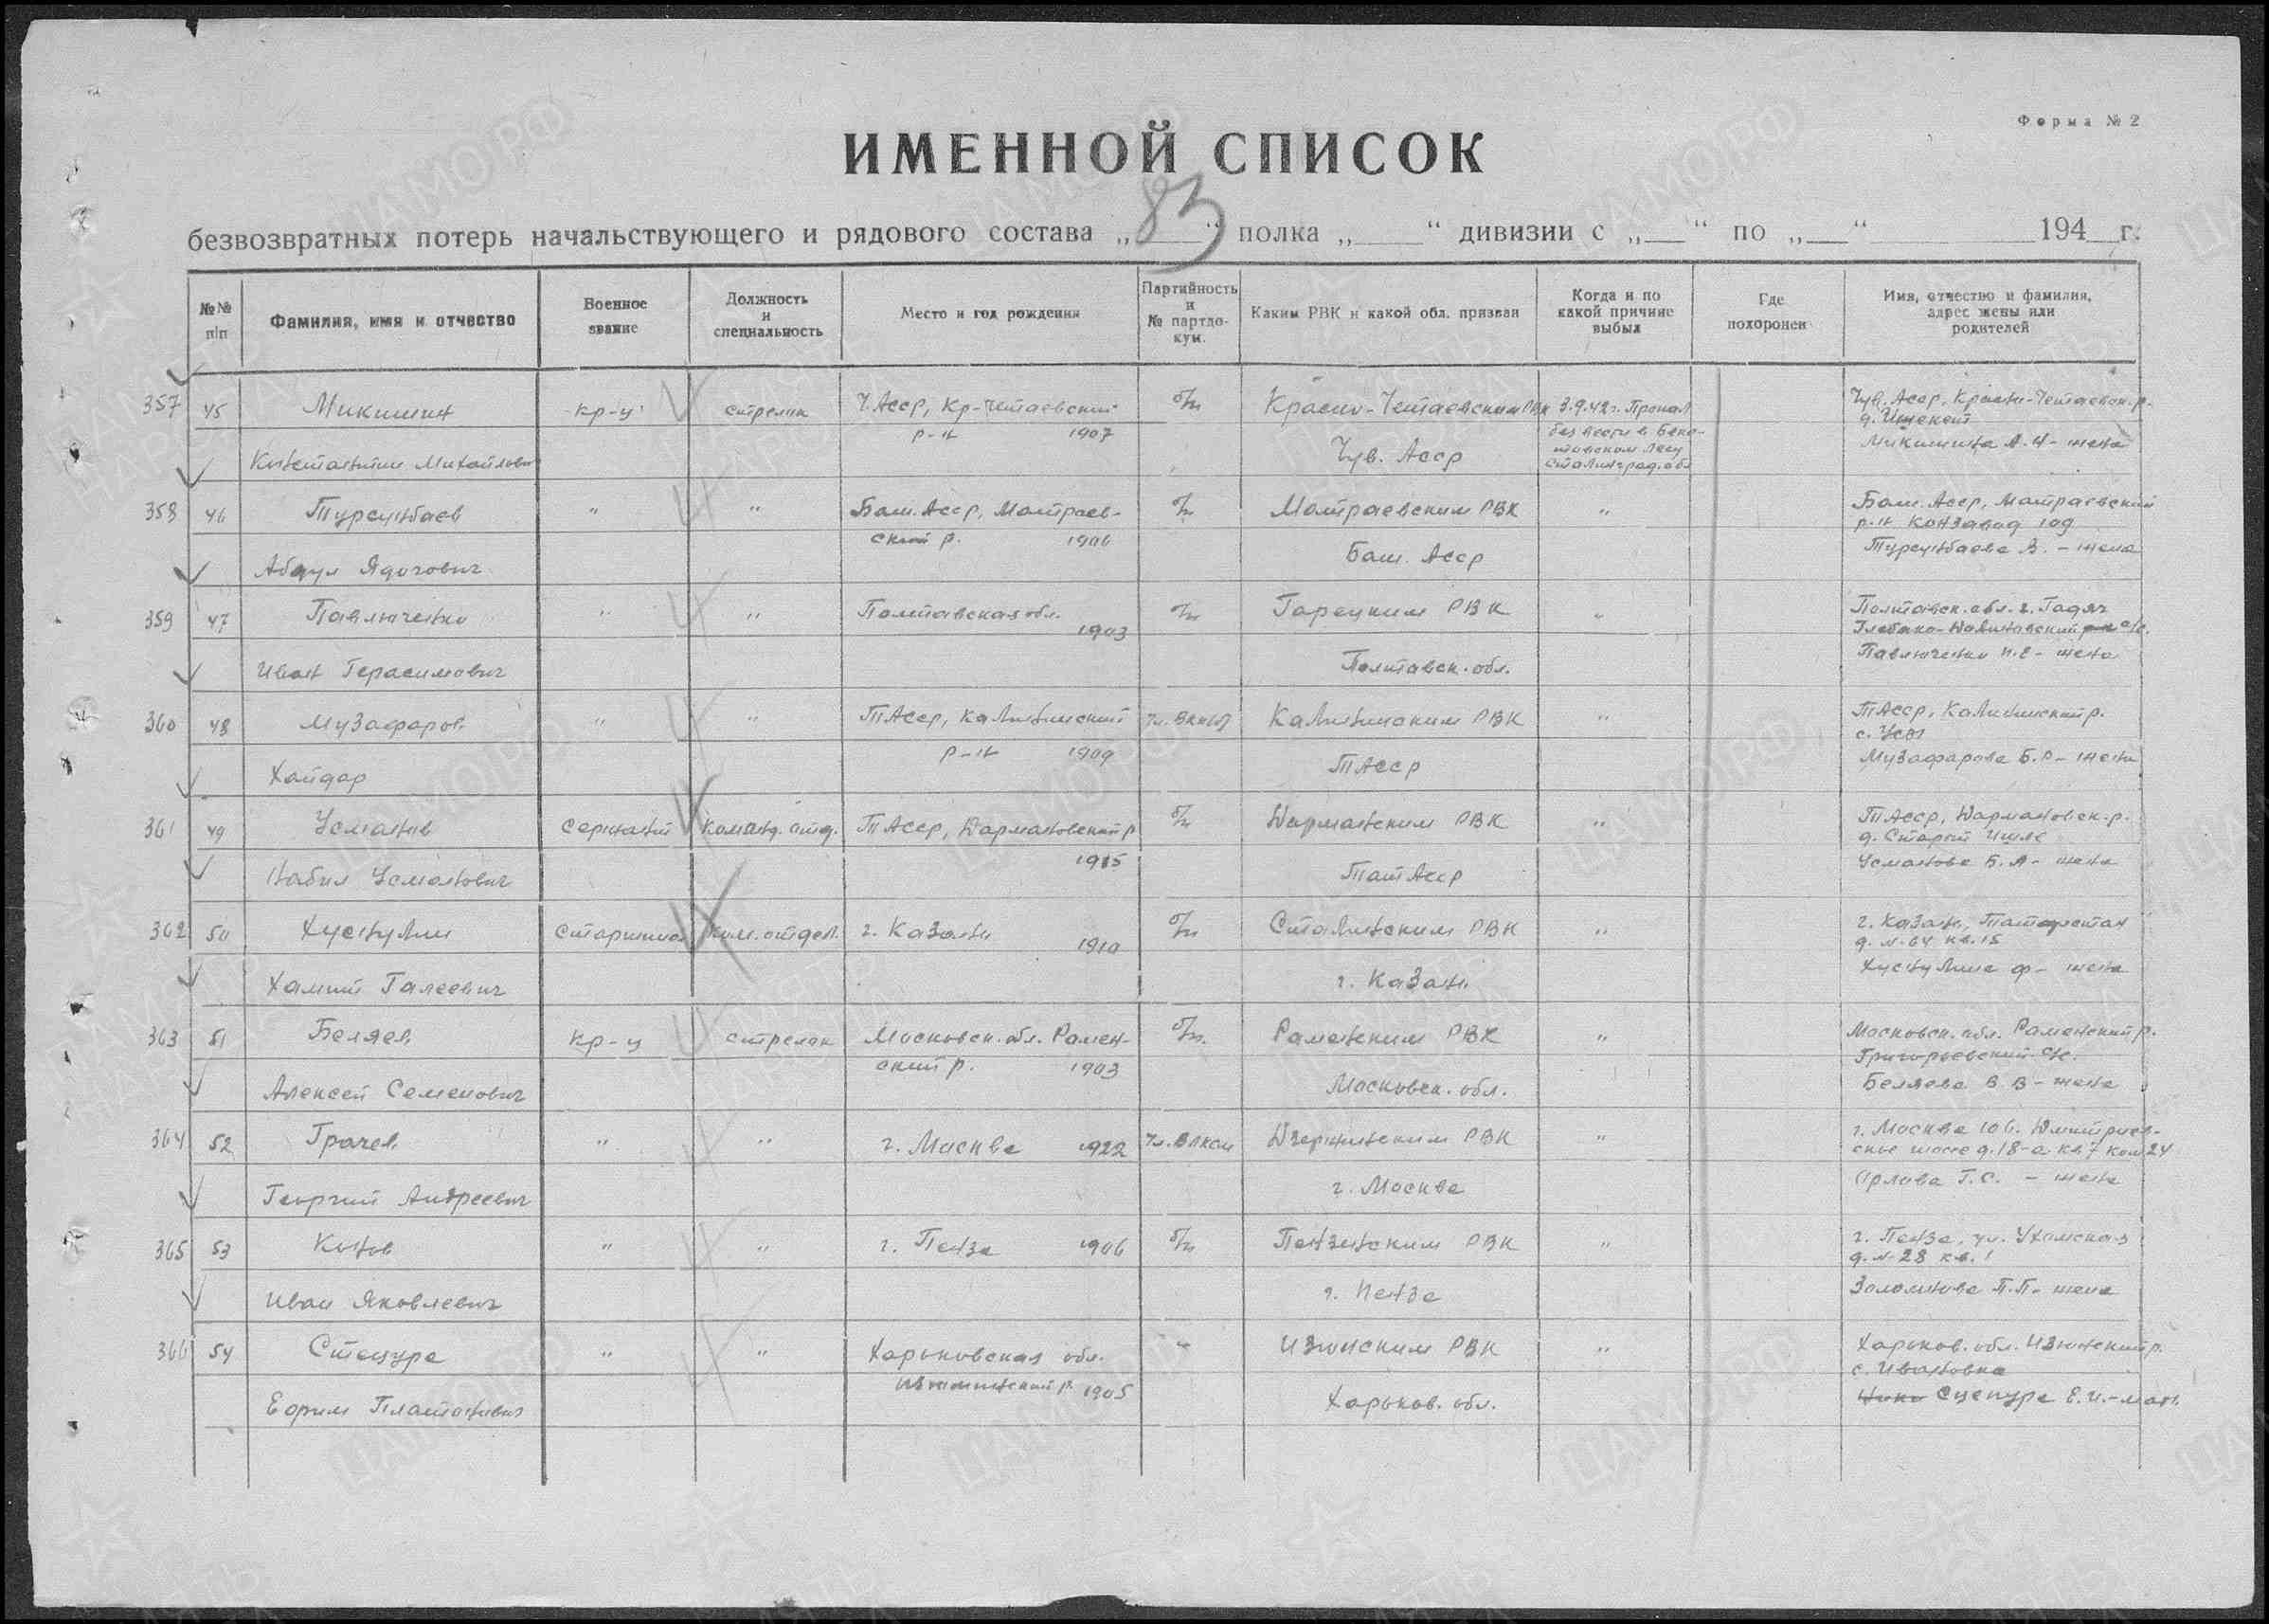 Форма № 2
ИМЕННОЙ СПИСОК
83
безвозвратных потерь начальствующего и рядового состава „ “ полка „ “ дивизии с „ “ по „ “ 194 г.
№№ п/п
Фамилия, имя и отчество
Военное звание
Должность и специальность
Место и год рождения
Партийность и № партдокум.
Каким РВК и какой обл. призван
Когда и по какой причине выбыл
Где похоронен
Имя, отчество и фамилия, адрес жены или родителей
357 45 Микишин кр-ц стрелок Ч.Асср, Кр-Четаевский б/п Красно-Четаевским РВК 3.9.42г. Пропал Чув. Асср, Красно-Четаевск.р.
р-н 1907 без вести в
Константин Михайлович Чув. Асср лесу Микишина А.И- жена
Сталинград.обл
358 46 Турсунбаев " " Баш. Асср, Матраев- б/п Матраевским РВК " Баш. Асср, Матраевский
ский р. 1906 р-н Конзавод 109
Абдул Баш. Асср Турсунбаева З. - жена
359 47 Павлюченко " " Полтавская обл. б/п РВК " Полтавск. обл. г. Гадяч
1903
Иван Герасимович Полтавск. обл. Павлюченко - жена
360 48 Музафаров " " ТАсср, Калининский чл. ВКП(б) Калининским РВК " ТАсср, Калининский р.
р-н 1909 с.
Хайдар ТАсср Музафарова Б.Р- жена
361 49 Усманов Сержант Команд. отд. ТАсср, р б/п РВК " ТАсср,
1915 д. Старый
Набил Усманович ТатАсср Усманова Б.А- жена
362 50 Хуснулин Старшина Ком. отдел. г. Казань 1910 б/п Сталинским РВК " г. Казань, Татарстан
д. № 64 кв. 15
Хамит Галеевич г. Казань Хуснулина Ф- жена
363 51 Беляев кр-ц стрелок Московск. обл. Рамен- б/п. Раменским РВК " Московск. обл. Раменский р.
ский р. 1903 Григорьевский с/с.
Алексей Семенович Московск. обл. Беляева В.В- жена
364 52 Грачев " " г. Москва 1922 чл. ВЛКСМ РВК " г. Москва 106. Дмитриев-
ское шоссе д. 18-а кв. 7 ком 24
Георгий Андреевич г. Москва Орлова Г.С. - жена
365 53 Конов " " г. Пенза 1906 б/п Пензинским РВК " г. Пенза, ул.
д. № 28 кв. 1
Иван Яковлевич г. Пенза П.П- жена
366 54 Стецура " " Харьковская обл. " Изюмским РВК " Харьков. обл. Изюмский р.
1905 с. Ивановка
Платонович Харьков. обл. Е.И.-мать